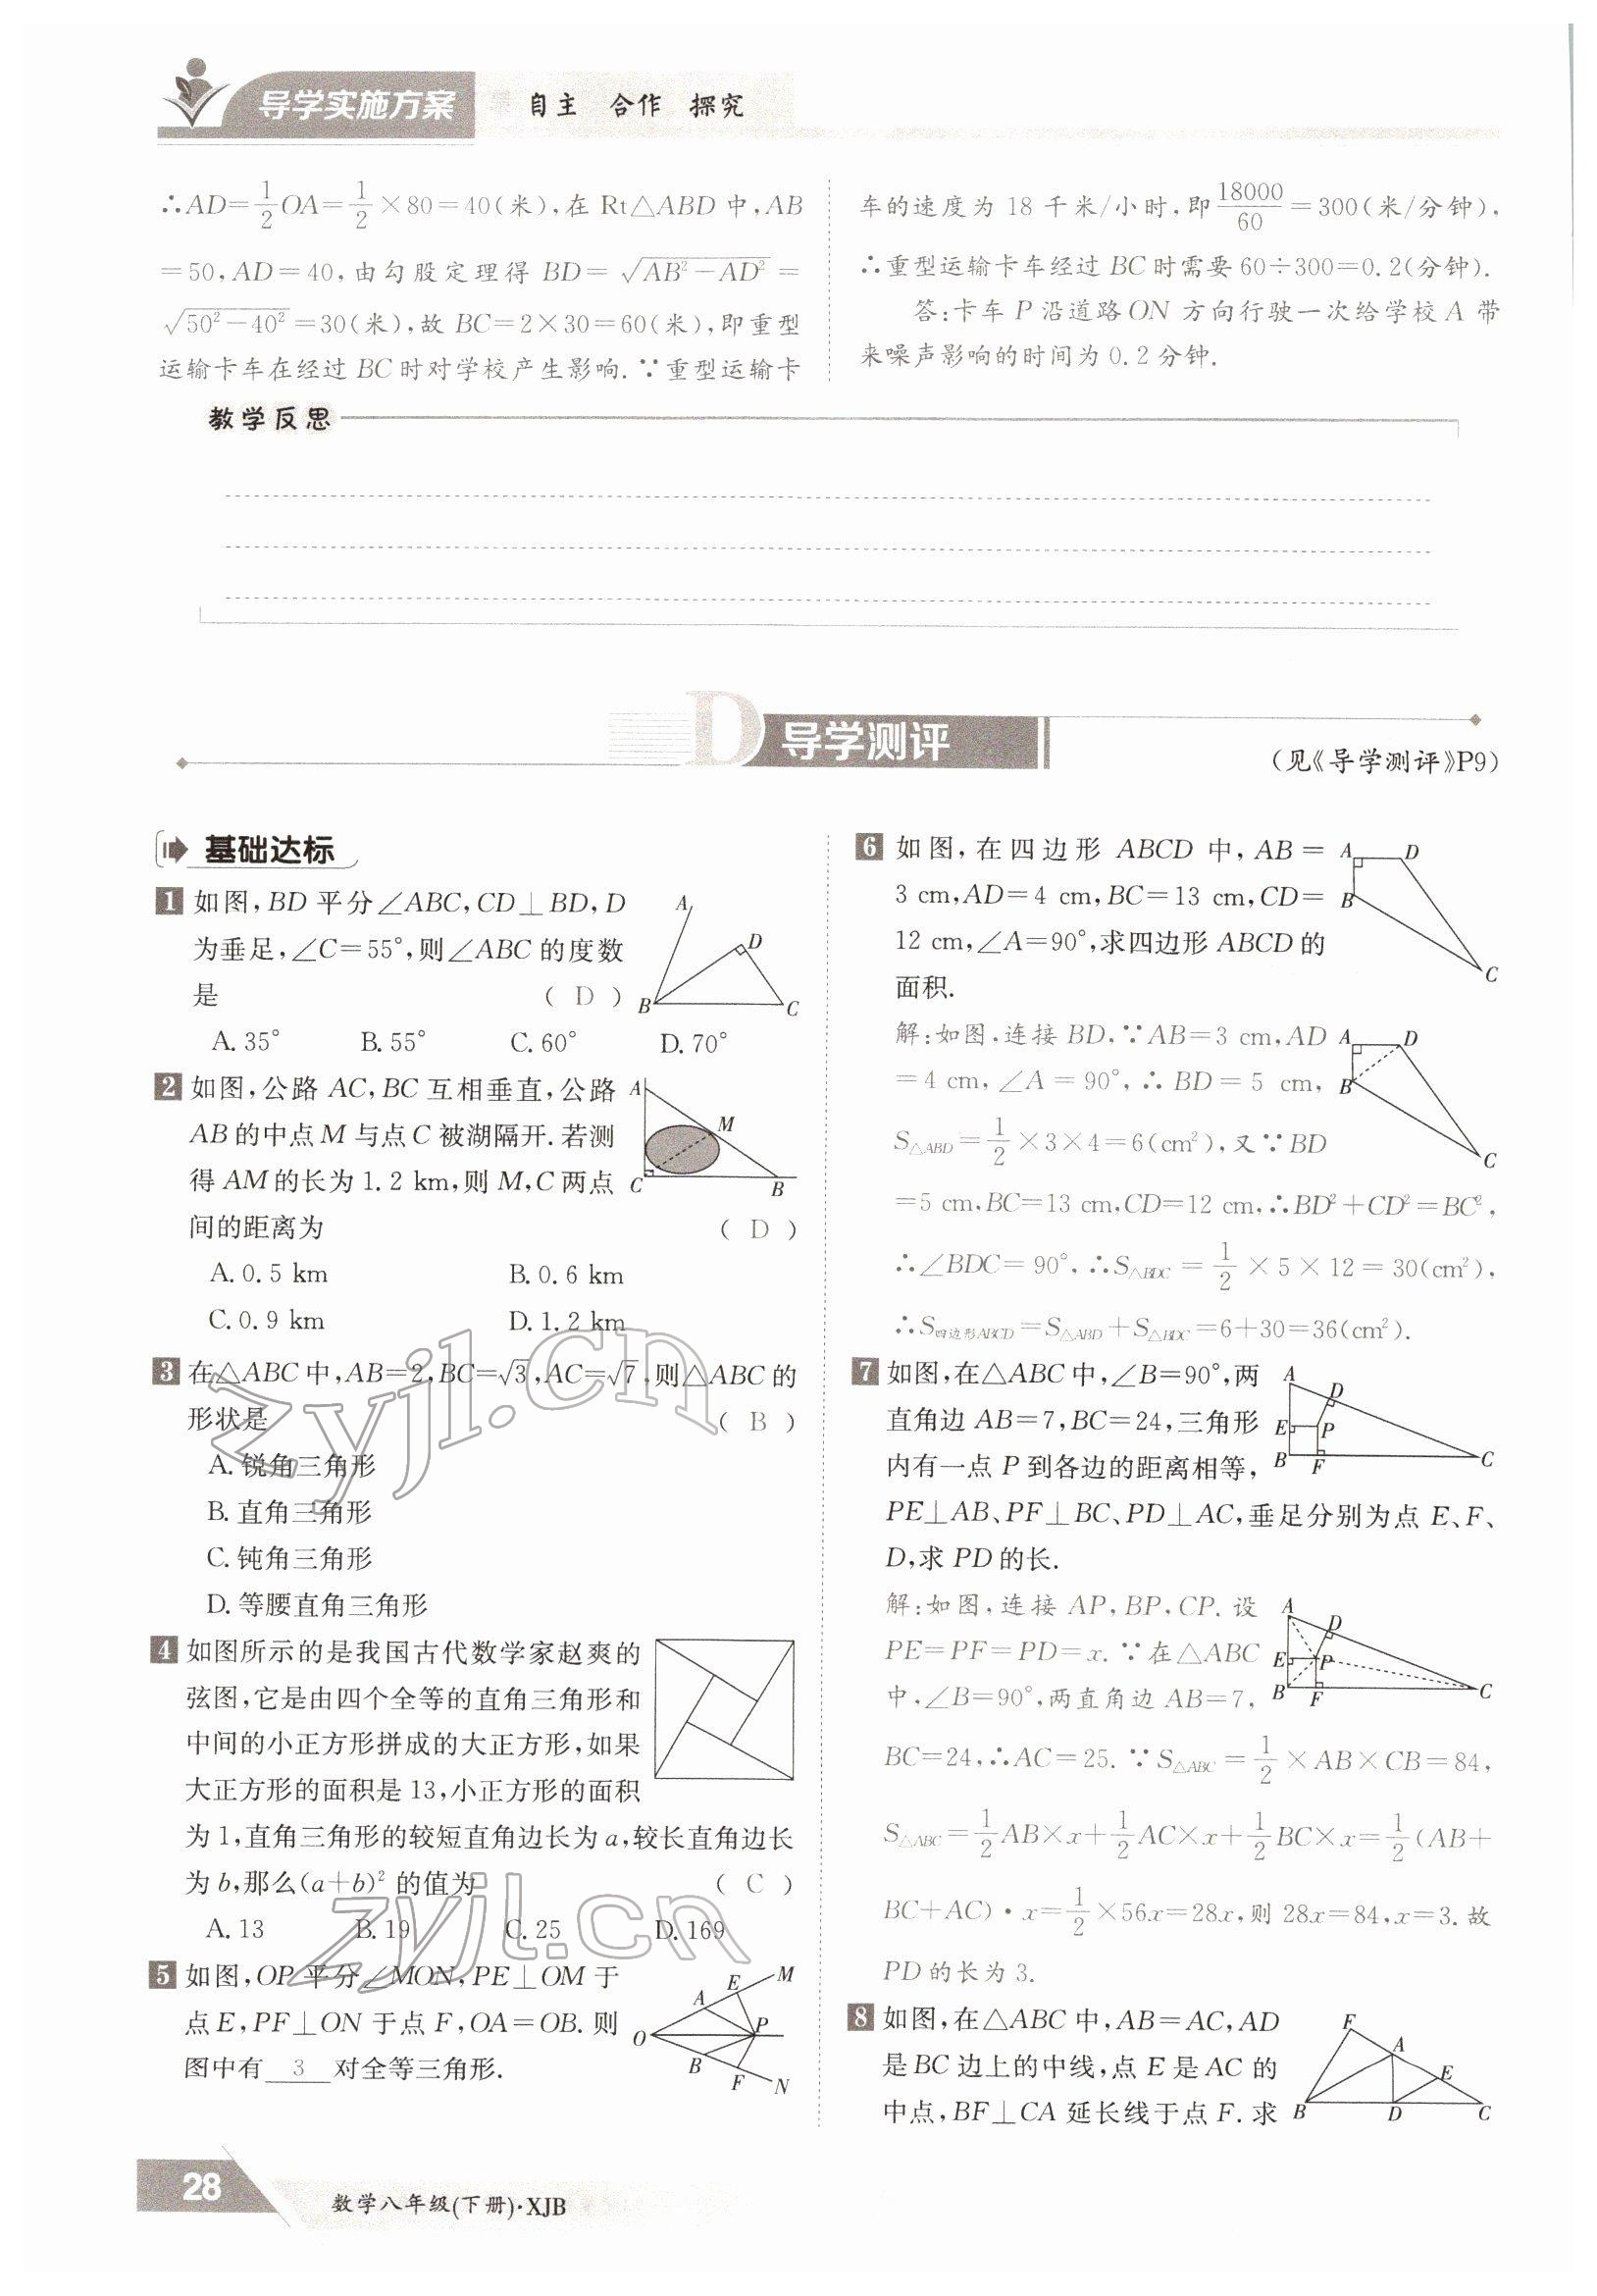 导学实施方案 自主 合作 探究
∴AD=1/2OA=1/2×80=40(米),在 Rt△ABD 中,AB
=50,AD=40,由勾股定理得 BD=√(AB²-AD²)=
√(50²-40²)=30(米),故 BC=2×30=60(米),即重型
运输卡车在经过 BC 时对学校产生影响.∵重型运输卡
车的速度为 18 千米/小时,即18000/60=300(米/分钟),
∴重型运输卡车经过 BC 时需要 60÷300=0.2(分钟).
答:卡车 P 沿道路 ON 方向行驶一次给学校 A 带
来噪声影响的时间为 0.2 分钟.
教学反思
D 导学测评
(见《导学测评》P9)
基础达标
1 如图,BD 平分∠ABC,CD⊥BD,D
为垂足,∠C=55°,则∠ABC 的度数
是 ( D )
A.35° B.55° C.60° D.70°
A D B C
2 如图,公路 AC,BC 互相垂直,公路
AB 的中点 M 与点 C 被湖隔开.若测
得 AM 的长为 1.2 km,则 M,C 两点
间的距离为 ( D )
A.0.5 km B.0.6 km
C.0.9 km D.1.2 km
A M C B
3 在△ABC 中,AB=2,BC=√3,AC=√7,则△ABC 的
形状是 ( B )
A.锐角三角形
B.直角三角形
C.钝角三角形
D.等腰直角三角形
4 如图所示的是我国古代数学家赵爽的
弦图,它是由四个全等的直角三角形和
中间的小正方形拼成的大正方形,如果
大正方形的面积是 13,小正方形的面积
为 1,直角三角形的较短直角边长为 a,较长直角边长
为 b,那么(a+b)² 的值为 ( C )
A.13 B.19 C.25 D.169
5 如图,OP 平分∠MON,PE⊥OM 于
点 E,PF⊥ON 于点 F,OA=OB.则
图中有 3 对全等三角形.
M E A O P B F N
6 如图,在四边形 ABCD 中,AB=
3 cm,AD=4 cm,BC=13 cm,CD=
12 cm,∠A=90°,求四边形 ABCD 的
面积.
A D B C
解:如图,连接 BD,∵AB=3 cm,AD
=4 cm,∠A=90°,∴BD=5 cm,
S△ABD=1/2×3×4=6(cm²),又∵BD
=5 cm,BC=13 cm,CD=12 cm,∴BD²+CD²=BC²,
∴∠BDC=90°,∴S△BDC=1/2×5×12=30(cm²),
∴S四边形ABCD=S△ABD+S△BDC=6+30=36(cm²).
A D B C
7 如图,在△ABC 中,∠B=90°,两
直角边 AB=7,BC=24,三角形
内有一点 P 到各边的距离相等,
PE⊥AB、PF⊥BC、PD⊥AC,垂足分别为点 E、F、
D,求 PD 的长.
A D E P B F C
解:如图,连接 AP,BP,CP.设
PE=PF=PD=x.∵在△ABC
中,∠B=90°,两直角边 AB=7,
BC=24,∴AC=25.∵S△ABC=1/2×AB×CB=84,
S△ABC=1/2AB×x+1/2AC×x+1/2BC×x=1/2(AB+
BC+AC)·x=1/2×56x=28x,则 28x=84,x=3.故
PD 的长为 3.
A D E P B F C
8 如图,在△ABC 中,AB=AC,AD
是 BC 边上的中线,点 E 是 AC 的
中点,BF⊥CA 延长线于点 F.求
F A E B D C
28 数学八年级(下册)·XJB
zyjl.cn
zyjl.cn